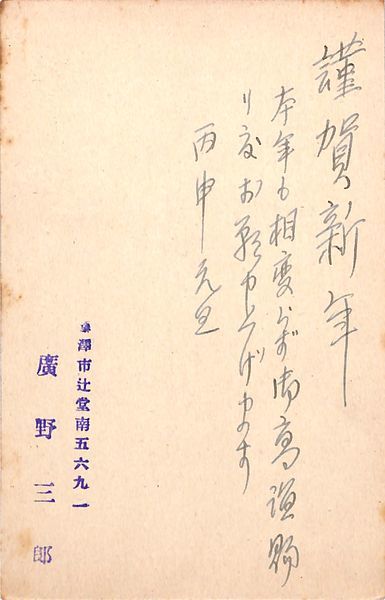 謹賀新年
本年も相変らず御高誼賜
り度お願申上げます
丙申元旦
藤澤市辻堂南五六九一
廣野三郎